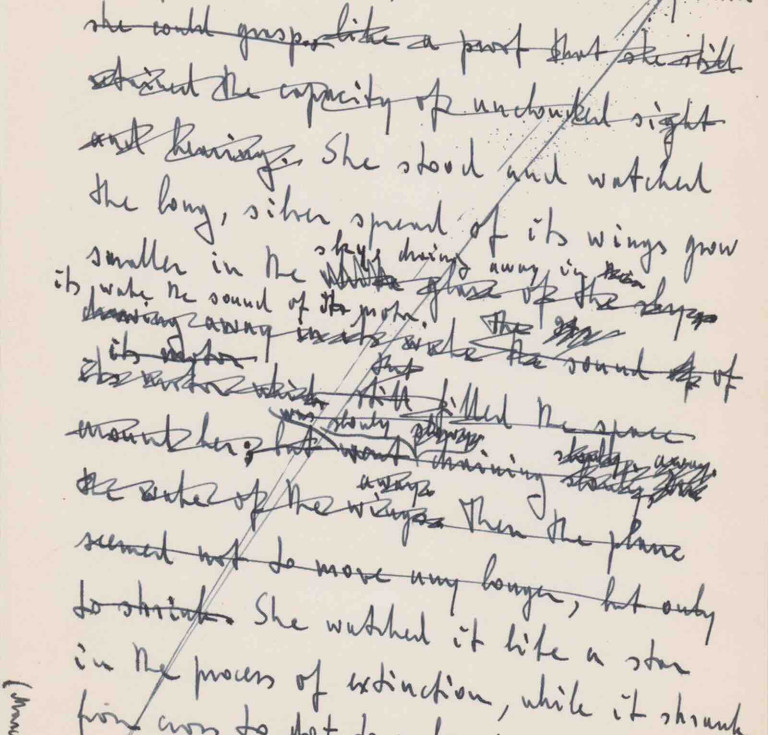 she could grasp, like a proof that she still
retained the capacity of unclouded sight
and hearing. She stood and watched
the long, silver spread of its wings grow
smaller in the
sky, draining away in
glare of the sky
its wake the sound of its motor.
draining away in its wake the sound of
its motor
its motor which still filled the space
but
was slowly
around her; but went draining
away
the wake of the wings. Then the plane
seemed not to move any longer, but only
to shrink. She watched it like a star
in the process of extinction, while it shrank
from cross to dot to a